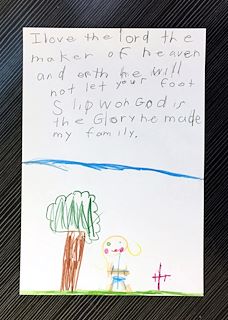 I love the lord the
maker of heaven
and eth he will
not let your foot
Slip Won God is
the Glory he made
my family.